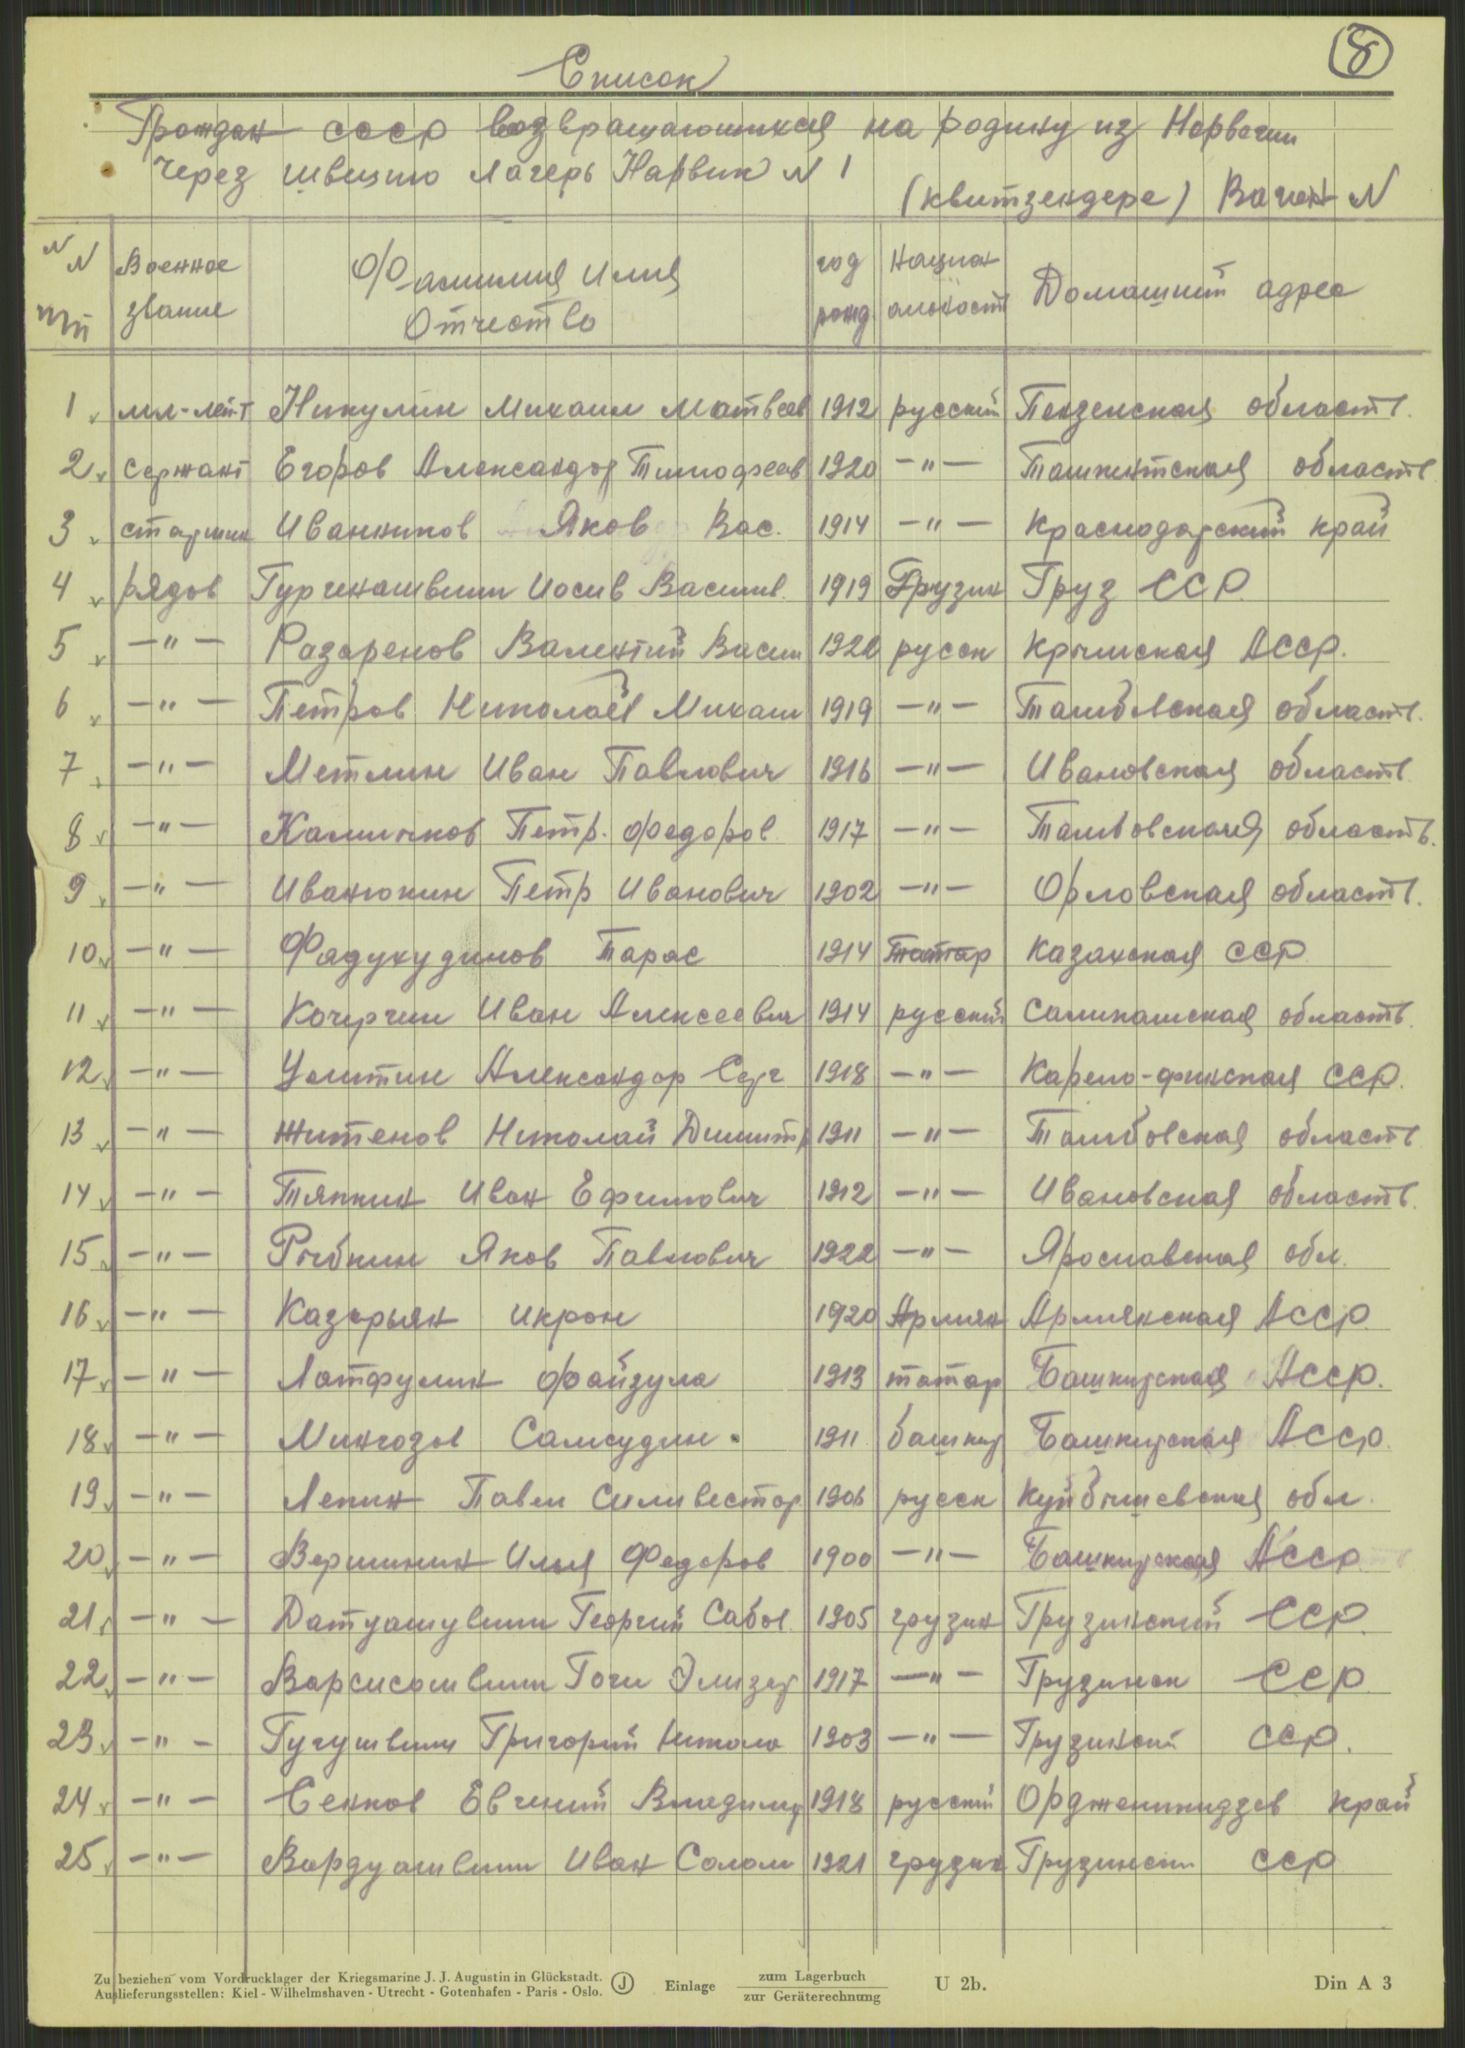 8
Список
Граждан СССР возвращающихся на родину из Норвегии
через швецию лагерь Нарвик N 1
(квитзендере) Вагон N
NN пп Военное звание Фамилия Имя Отчество год рожд Национальность Домашний адрес
1 мл-лей-т Никулин Михаил Матвеев 1912 русский Пензенская область.
2 сержант Егоров Александр Тимофеев 1920 -"- Ташкентская область
3 старшин Иванников Яков Вас. 1914 -"- Краснодарский край
4 рядов Гургенашвили Иосив Васил. 1919 Грузин Груз ССР
5 -"- Разаренов Валентий Васил 1922 русск Крымская АССР.
6 -"- Петров Николай Михаил 1919 -"- Тамбовская область.
7 -"- Метлин Иван Павлович 1916 -"- Ивановская область
8 -"- Калинчков Петр. Федоров 1917 -"- Тамбовская область.
9 -"- Иванюкин Петр Иванович 1902 -"- Орловская область.
10 -"- Фадукудинов Тарас 1914 татар Казахская ССР
11 -"- Кочергин Иван Алексеевич 1914 русский область
12 -"- Александр Серг 1918 -"- Карело-финская ССР.
13 -"- Житенов Николай Димитр 1911 -"- Тамбовская область
14 -"- Тяпкин Иван Ефимович 1912 -"- Ивановская область.
15 -"- Рыбкин Яков Павлович 1922 -"- Ярославская обл.
16 -"- Казарьян Икрон 1920 Армян Армянская АССР
17 -"- Латфулин Файзула 1913 татар Башкирская АССР.
18 -"- Мингозов Самсудин. 1911 башкир Башкирская АССР
19 -"- Лепин Павел Силивестор 1906 русск Куйбышевская обл.
20 -"- Вершинин Илья Федоров 1900 -"- Башкирская АССР
21 -"- Датуашувили Георгий Сабол 1905 грузин Грузинский ССР
22 -"- Варсисашвили Гоги Элизар 1917 -"- Грузинск ССР
23 -"- Гугушвили Григорий Никола 1903 -"- Грузинский ССР.
24 -"- Сенков Евгений Владимир 1918 русский Орджоникидзев край
25 -"- Вардуашвили Иван Солом 1921 грузин Грузински ССР
Zu beziehen vom Vordrucklager der Kriegsmarine J. J. Augustin in Glückstadt.
Auslieferungsstellen: Kiel - Wilhelmshaven - Utrecht - Gotenhafen - Paris - Oslo.
J Einlage zum Lagerbuch
zur Geräterechnung
U 2b. Din A 3